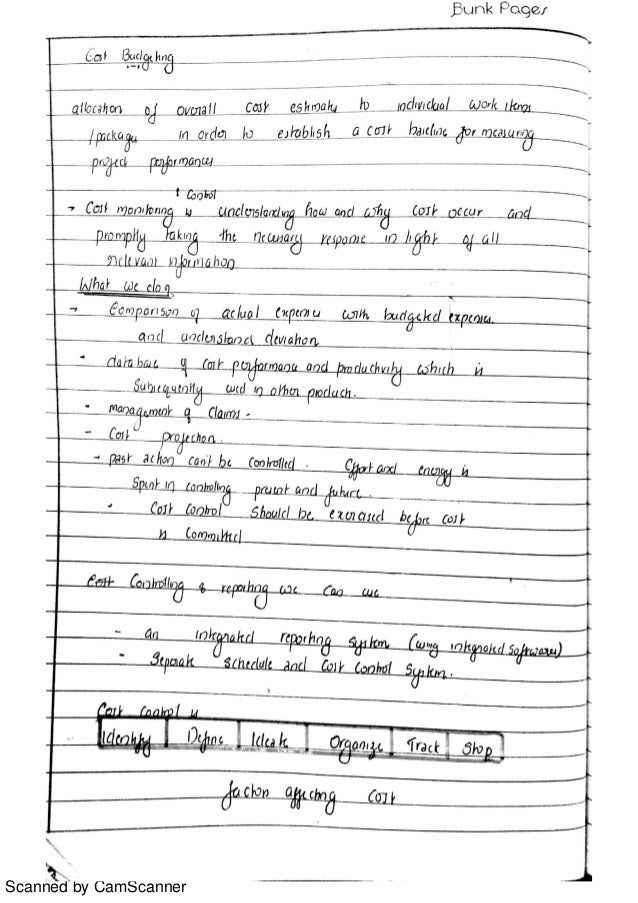 Bunk Pages
Cost Budgeting
allocation of overall cost estimate to individual work items
/package in order to establish a cost baseline for measuring
project performances
& Control
→ Cost monitoring is understanding how and why cost occur and
promptly taking the necessary response in light of all
relevant information
What we do
→ Comparison of actual expense with budgeted expenses
and understand deviation
- database of cost performance and productivity which is
Subsequently used in other product.
- management of claims.
- Cost projection.
- past action can't be controlled. Effort and energy is
Spent in controlling present and future.
- Cost control should be exercised before cost
is committed
Cost Controlling & reporting we can use
- an integrated reporting system (using integrated softwares)
- Seperate schedule and cost control system.
Cost control is
Identify | Define | Ideate | Organize | Track | Stop
factors affecting cost
Scanned by CamScanner